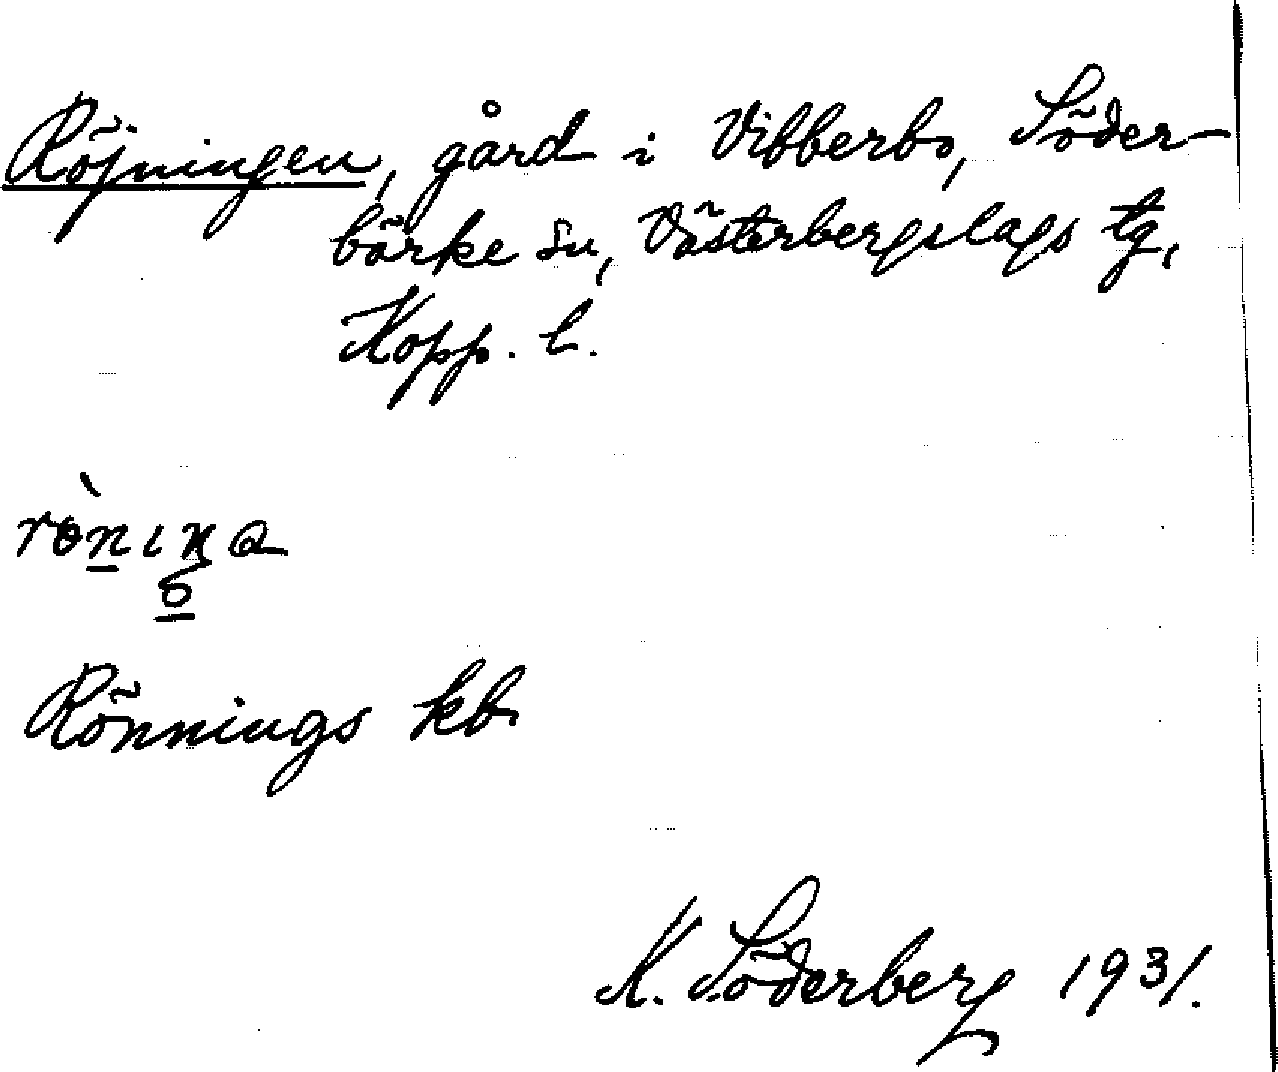 Röjningen, gård i Vibberbo, Söder-
bärke sn, Västerbergslags tg,
Kopp. l.
Rönnings kb
K. Söderberg 1931.